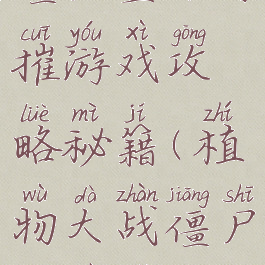 cuī yóu xì gōng
摧游戏攻
lüè mì jí zhí
略秘籍(植
wù dà zhàn jiāng shī
物大战僵尸